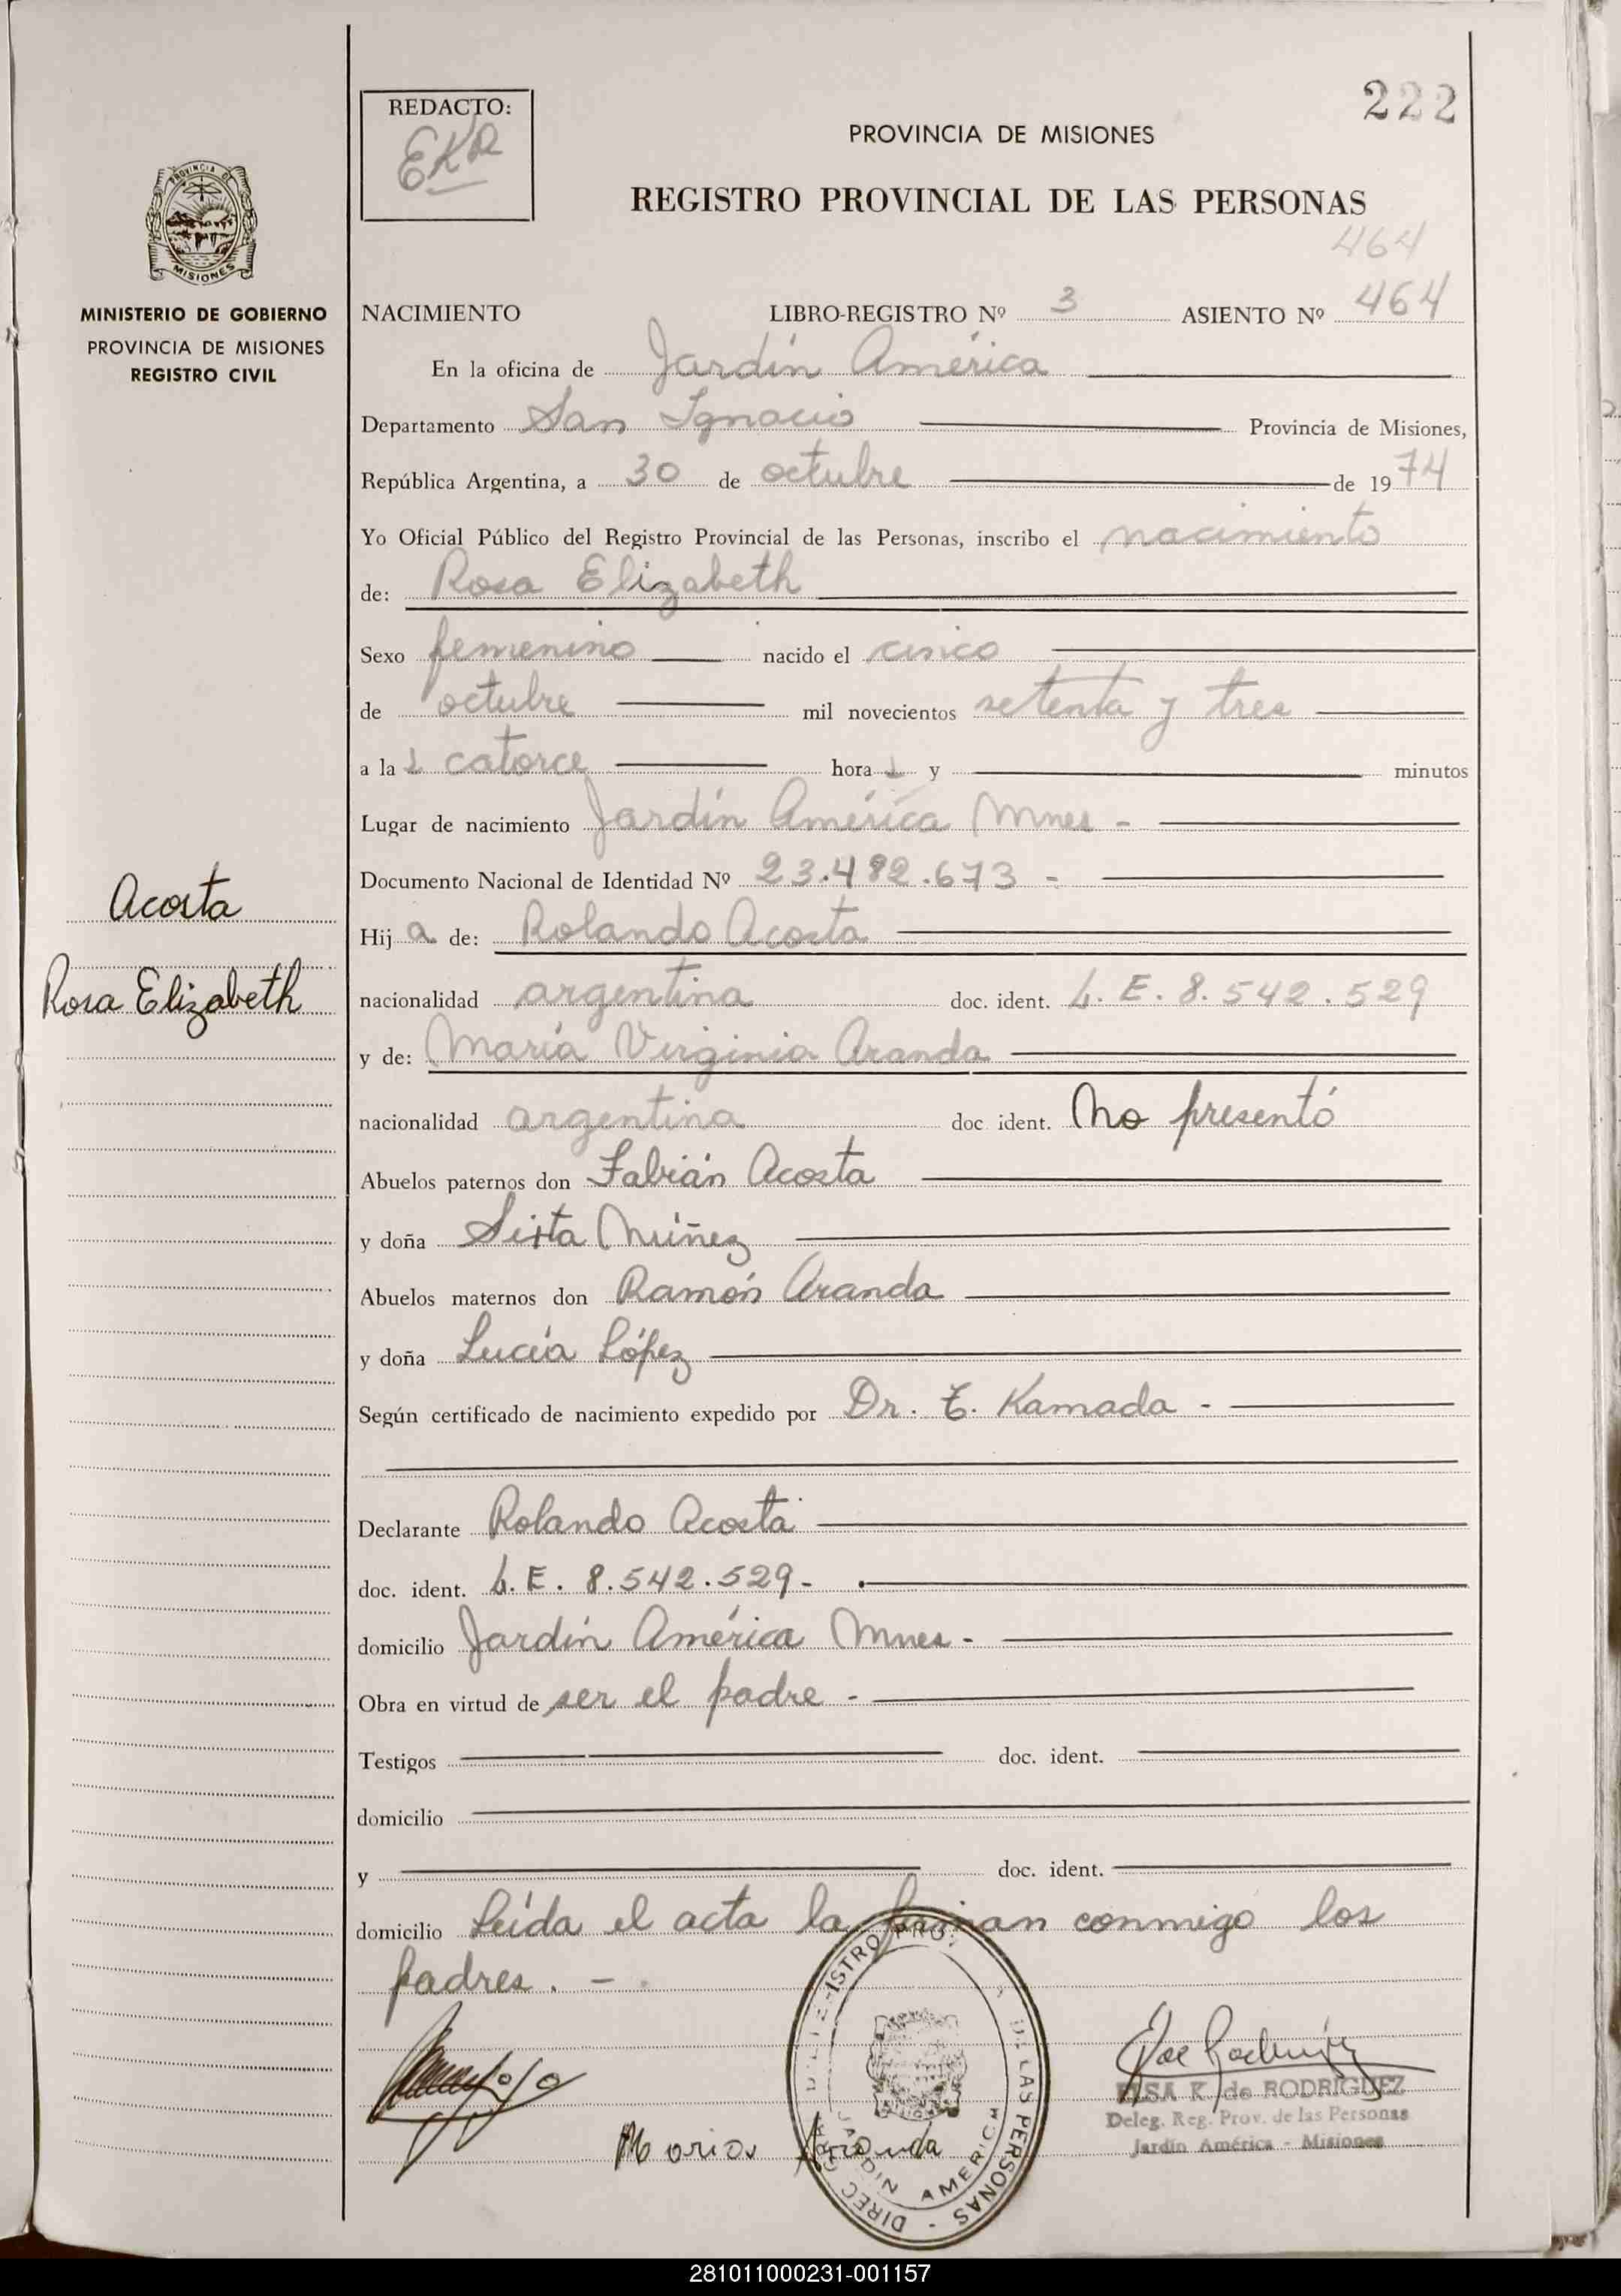 222
REDACTO:
EKR
PROVINCIA DE MISIONES
REGISTRO PROVINCIAL DE LAS PERSONAS
464
PROVINCIA DE MISIONES
MINISTERIO DE GOBIERNO
PROVINCIA DE MISIONES
REGISTRO CIVIL
NACIMIENTO LIBRO-REGISTRO Nº 3 ASIENTO Nº 464
En la oficina de Jardín América
Departamento San Ignacio Provincia de Misiones,
República Argentina, a 30 de octubre de 1974
Yo Oficial Público del Registro Provincial de las Personas, inscribo el nacimiento
de: Rosa Elizabeth
Sexo femenino nacido el cinco
de octubre mil novecientos setenta y tres
a la s catorce hora s y minutos
Lugar de nacimiento Jardín América Mnes -
Documento Nacional de Identidad Nº 23.482.673 -
Acosta
Rosa Elizabeth
Hij a de: Rolando Acosta
nacionalidad argentina doc. ident. L. E. 8.542.529
y de: María Virginia Aranda
nacionalidad argentina doc. ident. No presentó
Abuelos paternos don Fabián Acosta
y doña Sixta Núñez
Abuelos maternos don Ramón Aranda
y doña Lucía López
Según certificado de nacimiento expedido por Dr. T. Kamada -
Declarante Rolando Acosta
doc. ident. L. E. 8.542.529-
domicilio Jardín América Mnes -
Obra en virtud de ser el padre -
Testigos doc. ident.
domicilio
y doc. ident.
domicilio Leída el acta la firman conmigo los
padres. -
ELSA K. de RODRIGUEZ
Deleg. Reg. Prov. de las Personas
Jardín América - Misiones
DE LAS PERSONAS - DIREC
JARDIN AMERICA
281011000231-001157